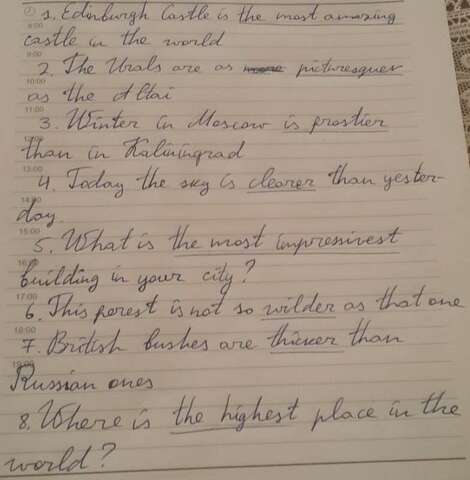 1. Edinburgh Castle is the most amazing
castle in the world
9:00
2. The Urals are as picturesquer
10:00
as the Altai
11:00
3. Winter in Moscow is frostier
12:00
than in Kaliningrad
13:00
4. Today the sky is clearer than yester-
14:00
day.
15:00
5. What is the most impressivest
16:00
building in your city?
17:00
6. This forest is not so wilder as that one
18:00
7. British bushes are thicker than
19:00
Russian ones
8. Where is the highest place in the
world?